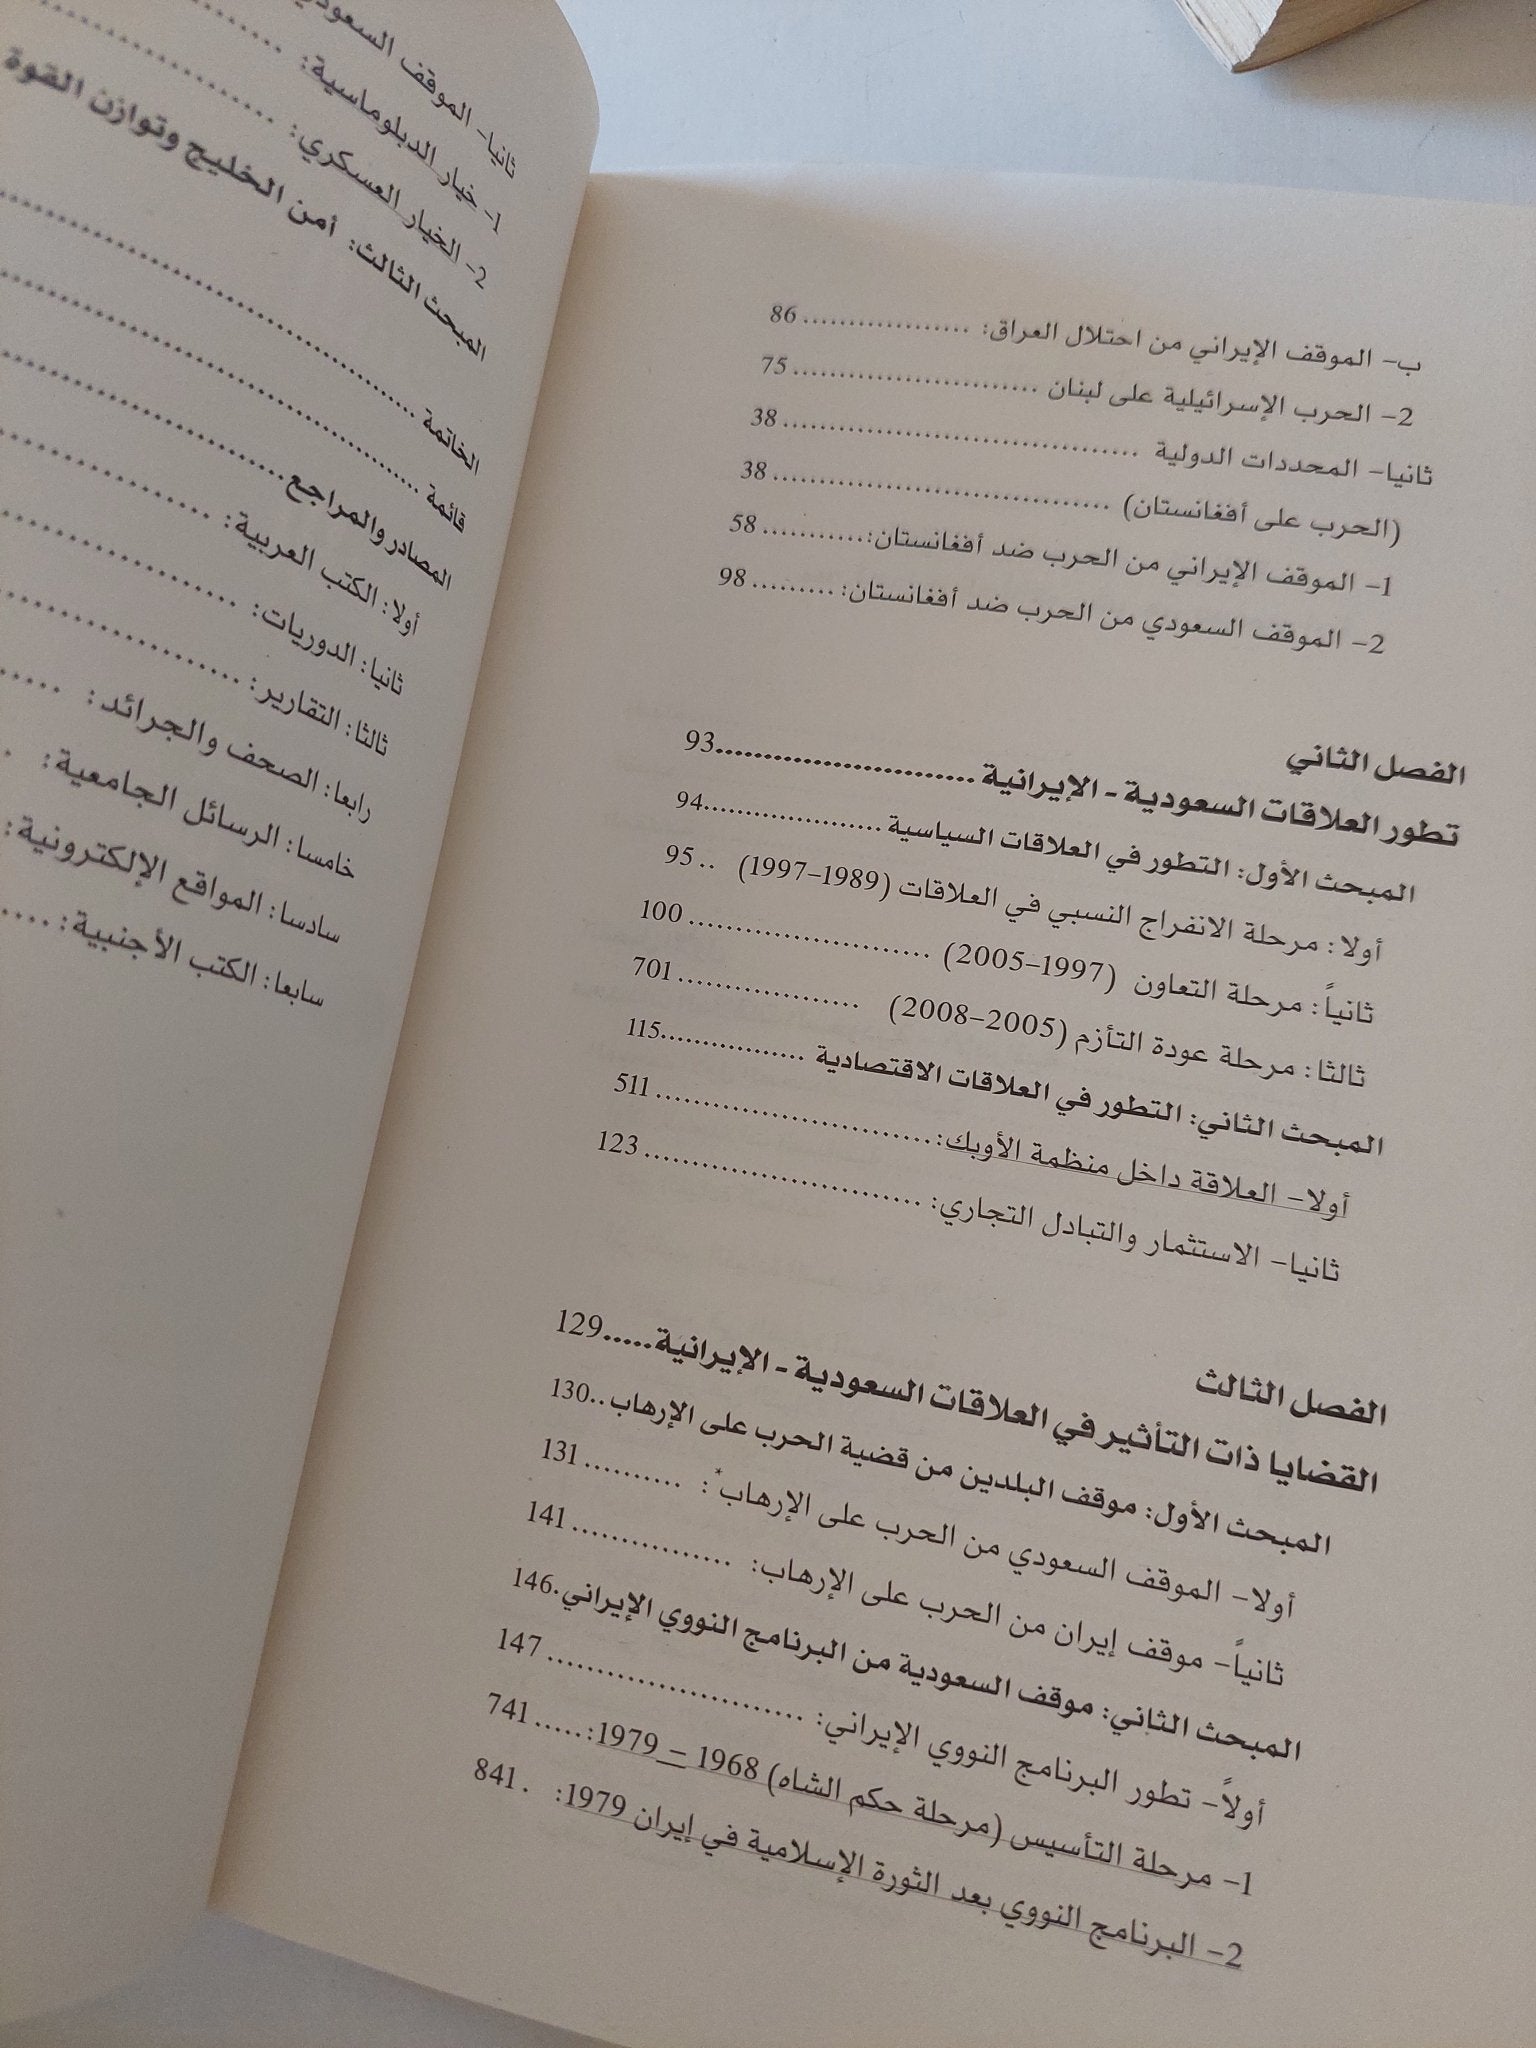 ب- الموقف الإيراني من احتلال العراق: .................. 86
2- الحرب الإسرائيلية على لبنان .......................... 75
ثانيا- المحددات الدولية ...................................... 38
(الحرب على أفغانستان) .................................... 38
1- الموقف الإيراني من الحرب ضد أفغانستان:........... 58
2- الموقف السعودي من الحرب ضد أفغانستان: ......... 98
الفصل الثاني
تطور العلاقات السعودية - الإيرانية ..........................93
المبحث الأول: التطور في العلاقات السياسية ....................94
أولا: مرحلة الانفراج النسبي في العلاقات (1989-1997) .. 95
ثانياً: مرحلة التعاون (1997-2005) .......................... 100
ثالثا: مرحلة عودة التأزم (2005-2008) .................... 701
المبحث الثاني: التطور في العلاقات الاقتصادية ................115
أولا- العلاقة داخل منظمة الأوبك: ............................. 511
ثانيا- الاستثمار والتبادل التجاري: ............................. 123
الفصل الثالث
القضايا ذات التأثير في العلاقات السعودية - الإيرانية.....129
المبحث الأول: موقف البلدين من قضية الحرب على الإرهاب..130
أولا- الموقف السعودي من الحرب على الإرهاب*: .......... 131
ثانياً- موقف إيران من الحرب على الإرهاب: ................ 141
المبحث الثاني: موقف السعودية من البرنامج النووي الإيراني.146
أولاً- تطور البرنامج النووي الإيراني: .......................... 147
1- مرحلة التأسيس (مرحلة حكم الشاه) 1968 _ 1979: ..... 741
2- البرنامج النووي بعد الثورة الإسلامية في إيران 1979: . 841
ثانيا- الموقف
1- خيار الدبلوماسية: ..............
2- الخيار العسكري: ..............
المبحث الثالث: أمن الخليج وتوازن القوة
الخاتمة ..............................
قائمة ..............................
المصادر والمراجع..............................
أولا: الكتب العربية: ..............
ثانيا: الدوريات: ....................
ثالثا: التقارير: ....................
رابعا: الصحف والجرائد: .....
خامسا: الرسائل الجامعية: .
سادسا: المواقع الإلكترونية:
سابعا: الكتب الأجنبية: ....